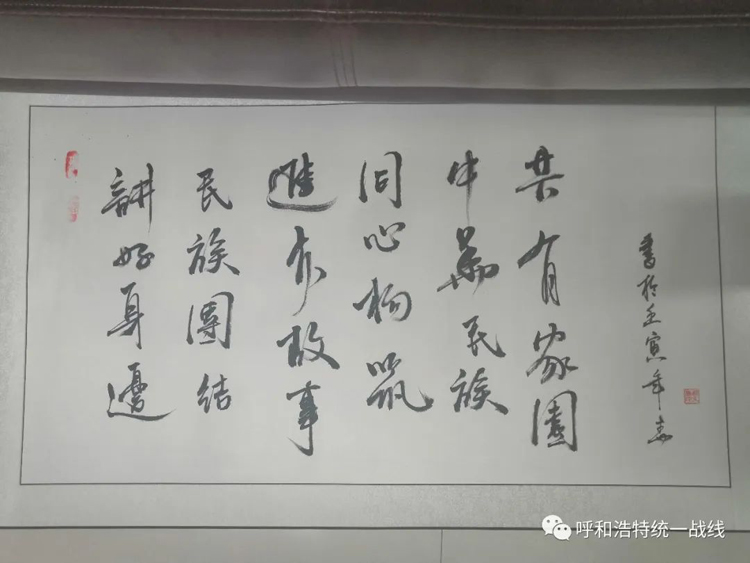 講好身邊
民族團结
進步故事
同心构筑
中華民族
共有家園
書於壬寅年春
呼和浩特统一战线